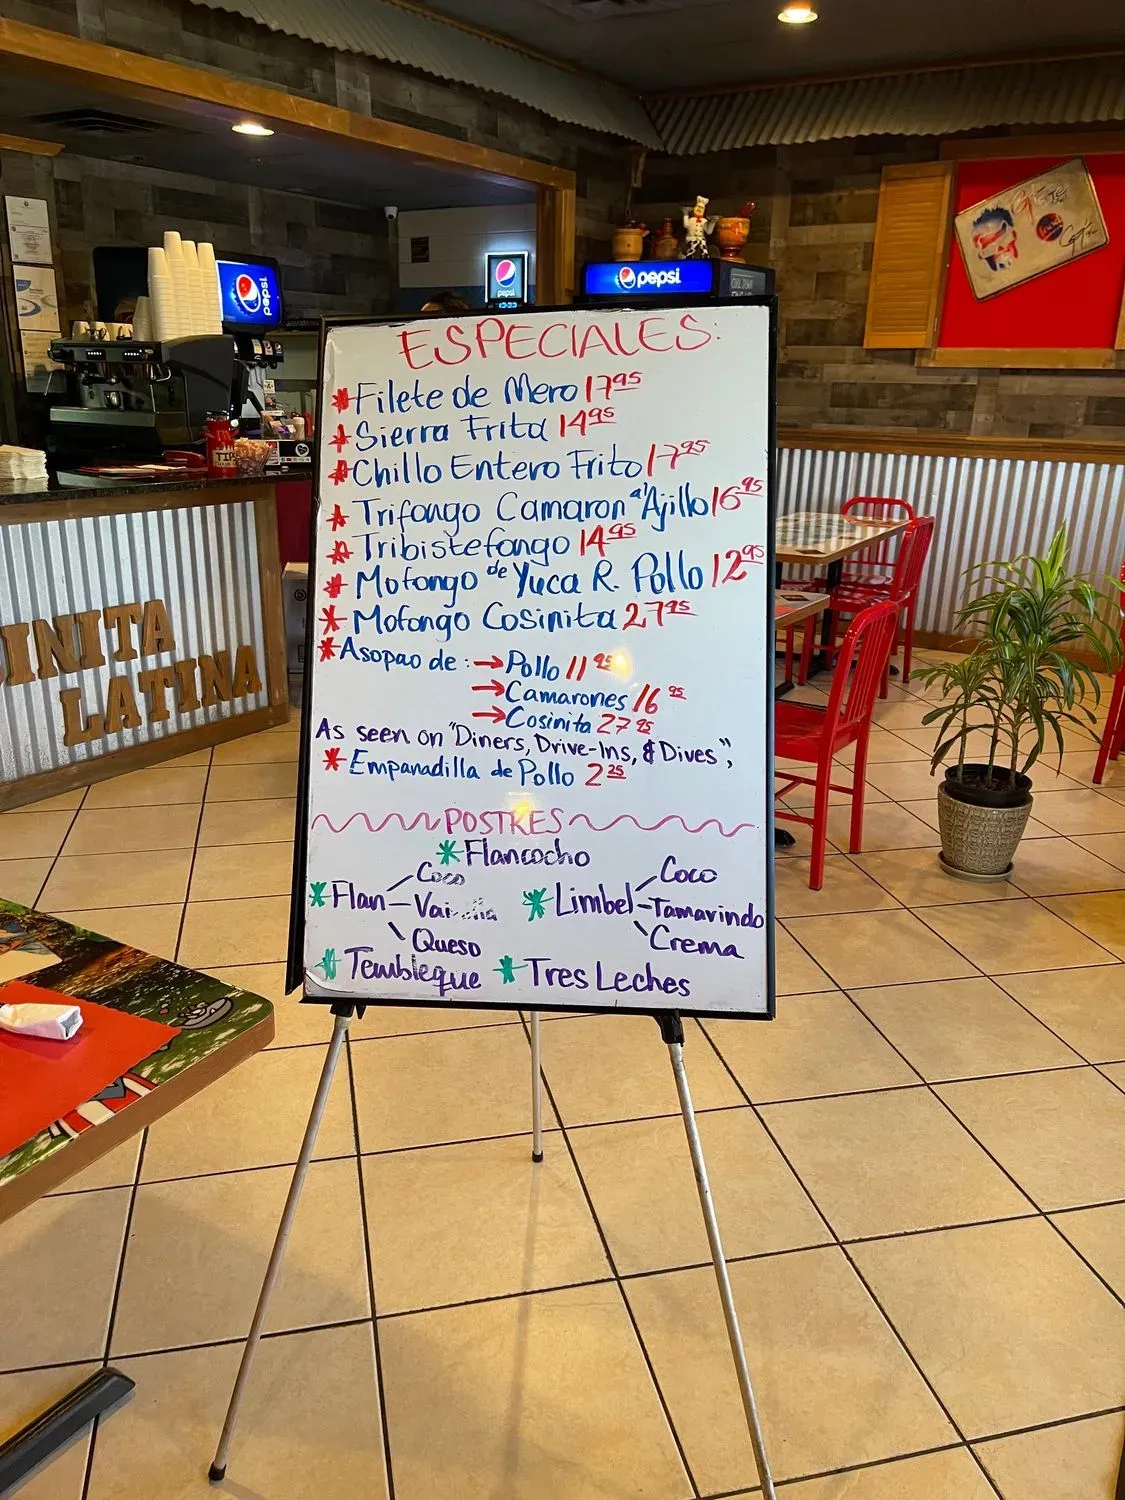 ESPECIALES:
* Filete de Mero 17 95
* Sierra Frita 14 95
* Chillo Entero Frito 17 95
* Trifongo Camaron "al Ajillo 16 95
* Tribistefongo 14 95
* Mofongo de Yuca R. Pollo 12 95
* Mofongo Cosinita 27 95
* Asopao de: → Pollo 11 95
→ Camarones 16 95
→ Cosinita 27 95
As seen on "Diners, Drive-Ins, & Dives",
* Empanadilla de Pollo 2 25
POSTRES
* Flancocho
* Flan
Coco
Vainilla
Queso
* Limbel
Coco
Tamarindo
Crema
* Tembleque * Tres Leches
INITA
LATINA
pepsi
pepsi
pepsi
TIPS